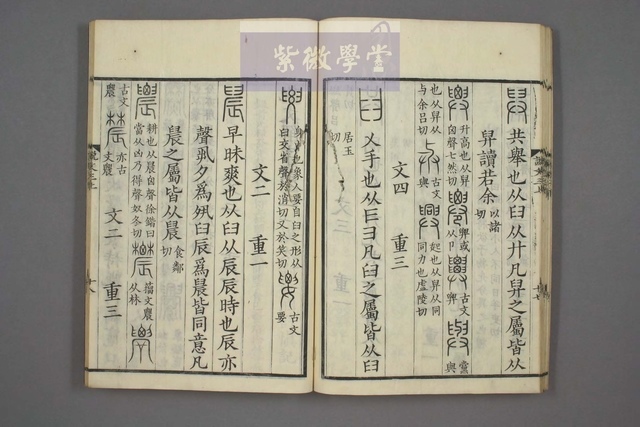 紫微學堂
舁 共舉也从𦥑从廾凡舁之屬皆从
舁讀若余 以諸切
升高也从舁囟聲七然切 或从卩 古文 與 黨與
也从舁从与余呂切 古文與 興 起也从舁从同同力也虛陵切
文四 重三
𦥑 叉手也从彐凡𦥑之屬皆从𦥑
居玉切
身中也象人要自𦥑之形从𦥑交省聲於消切又於笑切 古文要
文二 重一
晨 早昧爽也从𦥑从辰辰時也辰亦
聲丮夕爲𡖊𦥑辰爲晨皆同意凡
晨之屬皆从晨 食鄰切
耕也从晨囟聲徐鍇曰當从凶乃得聲奴冬切 籒文農从林
古文農 亦古文農 文二 重三